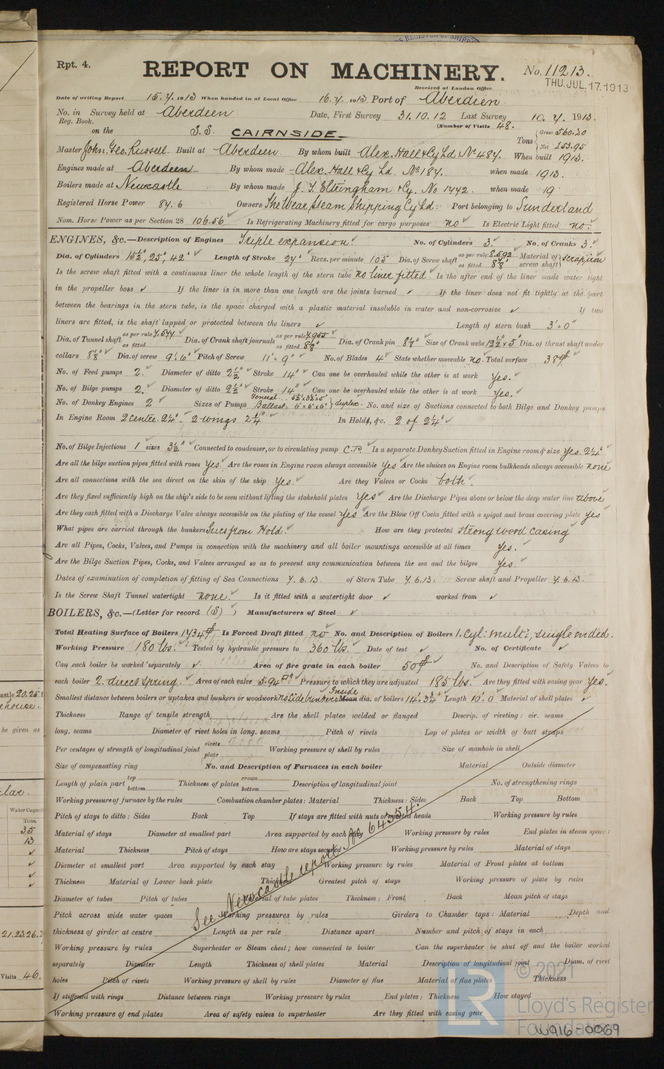 Rpt. 4.
REPORT ON MACHINERY. No. 11213.
Received at London Office THU. JUL. 17. 1913
Date of writing Report 15.7.1913 When handed in at Local Office 16.7.1913 Port of Aberdeen
No. in Survey held at Aberdeen Date, First Survey 31.10.12 Last Survey 10.7.1913.
Reg. Book. (Number of Visits 48.
on the S.S. CAIRNSIDE. Tons Gross 560.20 Net 253.95
Master John Geo. Russell. Built at Aberdeen By whom built Alex. Hall & Cy Ld. No 487. When built 1913.
Engines made at Aberdeen By whom made Alex. Hall & Cy Ld. when made 1913.
Boilers made at Newcastle By whom made J. T. Eltringham & Cy. No 1772. when made 19
Registered Horse Power 87.6 Owners The Wear Steam Shipping Cy Ld. Port belonging to Sunderland
Nom. Horse Power as per Section 28 106.56 Is Refrigerating Machinery fitted for cargo purposes no Is Electric Light fitted no.
ENGINES, &c.—Description of Engines Triple expansion. No. of Cylinders 3 No. of Cranks 3.
Dia. of Cylinders 25", 42" Length of Stroke 27" Revs. per minute 105 Dia. of Screw shaft as per rule as fitted Material of screw shaft
Is the screw shaft fitted with a continuous liner the whole length of the stern tube no liner fitted Is the after end of the liner made water tight
in the propeller boss ✓ If the liner is in more than one length are the joints burned ✓ If the liner does not fit tightly at the part
between the bearings in the stern tube, is the space charged with a plastic material insoluble in water and non-corrosive ✓ If two
liners are fitted, is the shaft lapped or protected between the liners ✓ Length of stern bush 3'-0"
Dia. of Tunnel shaft as per rule as fitted Dia. of Crank shaft journals as per rule as fitted Dia. of Crank pin 8¼" Size of Crank webs Dia. of thrust shaft under
collars Dia. of screw 9'6" Pitch of Screw 11'-9" No. of Blades 4 State whether moveable no Total surface 38
No. of Feed pumps 2. Diameter of ditto Stroke 14" Can one be overhauled while the other is at work Yes.
No. of Bilge pumps 2. Diameter of ditto Stroke 14" Can one be overhauled while the other is at work Yes.
No. of Donkey Engines 2 Sizes of Pumps General Ballast duplex No. and size of Suctions connected to both Bilge and Donkey pumps
In Engine Room 2 centre 2¼". 2 wings 2¼" In Holds, &c. 2 of 2¼"
No. of Bilge Injections 1 sizes 3½" Connected to condenser, or to circulating pump C.P. Is a separate Donkey Suction fitted in Engine room & size Yes. 2¼"
Are all the bilge suction pipes fitted with roses Yes. Are the roses in Engine room always accessible Yes Are the sluices on Engine room bulkheads always accessible none
Are all connections with the sea direct on the skin of the ship Yes. Are they Valves or Cocks both
Are they fixed sufficiently high on the ship's side to be seen without lifting the stokehold plates Yes Are the Discharge Pipes above or below the deep water line above
Are they each fitted with a Discharge Valve always accessible on the plating of the vessel Yes Are the Blow Off Cocks fitted with a spigot and brass covering plate Yes
What pipes are carried through the bunkers Sucs from Hold. How are they protected Strong wood casing
Are all Pipes, Cocks, Valves, and Pumps in connection with the machinery and all boiler mountings accessible at all times Yes.
Are the Bilge Suction Pipes, Cocks, and Valves arranged so as to prevent any communication between the sea and the bilges Yes.
Dates of examination of completion of fitting of Sea Connections 7.6.13 of Stern Tube 7.6.13. Screw shaft and Propeller 7.6.13.
Is the Screw Shaft Tunnel watertight none. Is it fitted with a watertight door ✓ worked from ✓
BOILERS, &c.—(Letter for record (S) Manufacturers of Steel ✓
Total Heating Surface of Boilers 1734 Is Forced Draft fitted no No. and Description of Boilers 1. Cyl: mult:, single ended.
Working Pressure 180 lbs. Tested by hydraulic pressure to 360 lbs. Date of test ✓ No. of Certificate ✓
Can each boiler be worked separately ✓ Area of fire grate in each boiler 50 No. and Description of Safety Valves to
each boiler 2. direct spring. Area of each valve 5.94 Pressure to which they are adjusted 185 lbs. Are they fitted with easing gear Yes
Smallest distance between boilers or uptakes and bunkers or woodwork no side bunkers Inside Mean dia. of boilers Length 10'-0 Material of shell plates ✓
Thickness Range of tensile strength Are the shell plates welded or flanged Descrip. of riveting: cir. seams
long. seams Diameter of rivet holes in long. seams Pitch of rivets Lap of plates or width of butt straps
Per centages of strength of longitudinal joint rivets plate Working pressure of shell by rules Size of manhole in shell
Size of compensating ring No. and Description of Furnaces in each boiler Material Outside diameter
Length of plain part top bottom Thickness of plates crown bottom Description of longitudinal joint No. of strengthening rings
Working pressure of furnace by the rules Combustion chamber plates: Material Thickness: Sides Back Top Bottom
Pitch of stays to ditto: Sides Back Top If stays are fitted with nuts or riveted heads Working pressure by rules
Material of stays Diameter at smallest part Area supported by each stay Working pressure by rules End plates in steam space:
Material Thickness Pitch of stays How are stays secured Working pressure by rules Material of stays
Diameter at smallest part Area supported by each stay Working pressure by rules Material of Front plates at bottom
Thickness Material of Lower back plate Thickness Greatest pitch of stays Working pressure of plate by rules
Diameter of tubes Pitch of tubes Material of tube plates Thickness: Front Back Mean pitch of stays
Pitch across wide water spaces Working pressures by rules Girders to Chamber tops: Material Depth and
thickness of girder at centre Length as per rule Distance apart Number and pitch of stays in each
Working pressure by rules Superheater or Steam chest; how connected to boiler Can the superheater be shut off and the boiler worked
separately Diameter Length Thickness of shell plates Material Description of longitudinal joint Diam. of rivet
holes Pitch of rivets Working pressure of shell by rules Diameter of flue Material of flue plates Thickness
If stiffened with rings Distance between rings Working pressure by rules End plates: Thickness How stayed
Working pressure of end plates Area of safety valves to superheater Are they fitted with easing gear
See Newcastle report No 64354.
LR
© 2021
Lloyd's Register
Foundation
W916-0069
Water Capacity
Tons.
35
13
Visits 46.